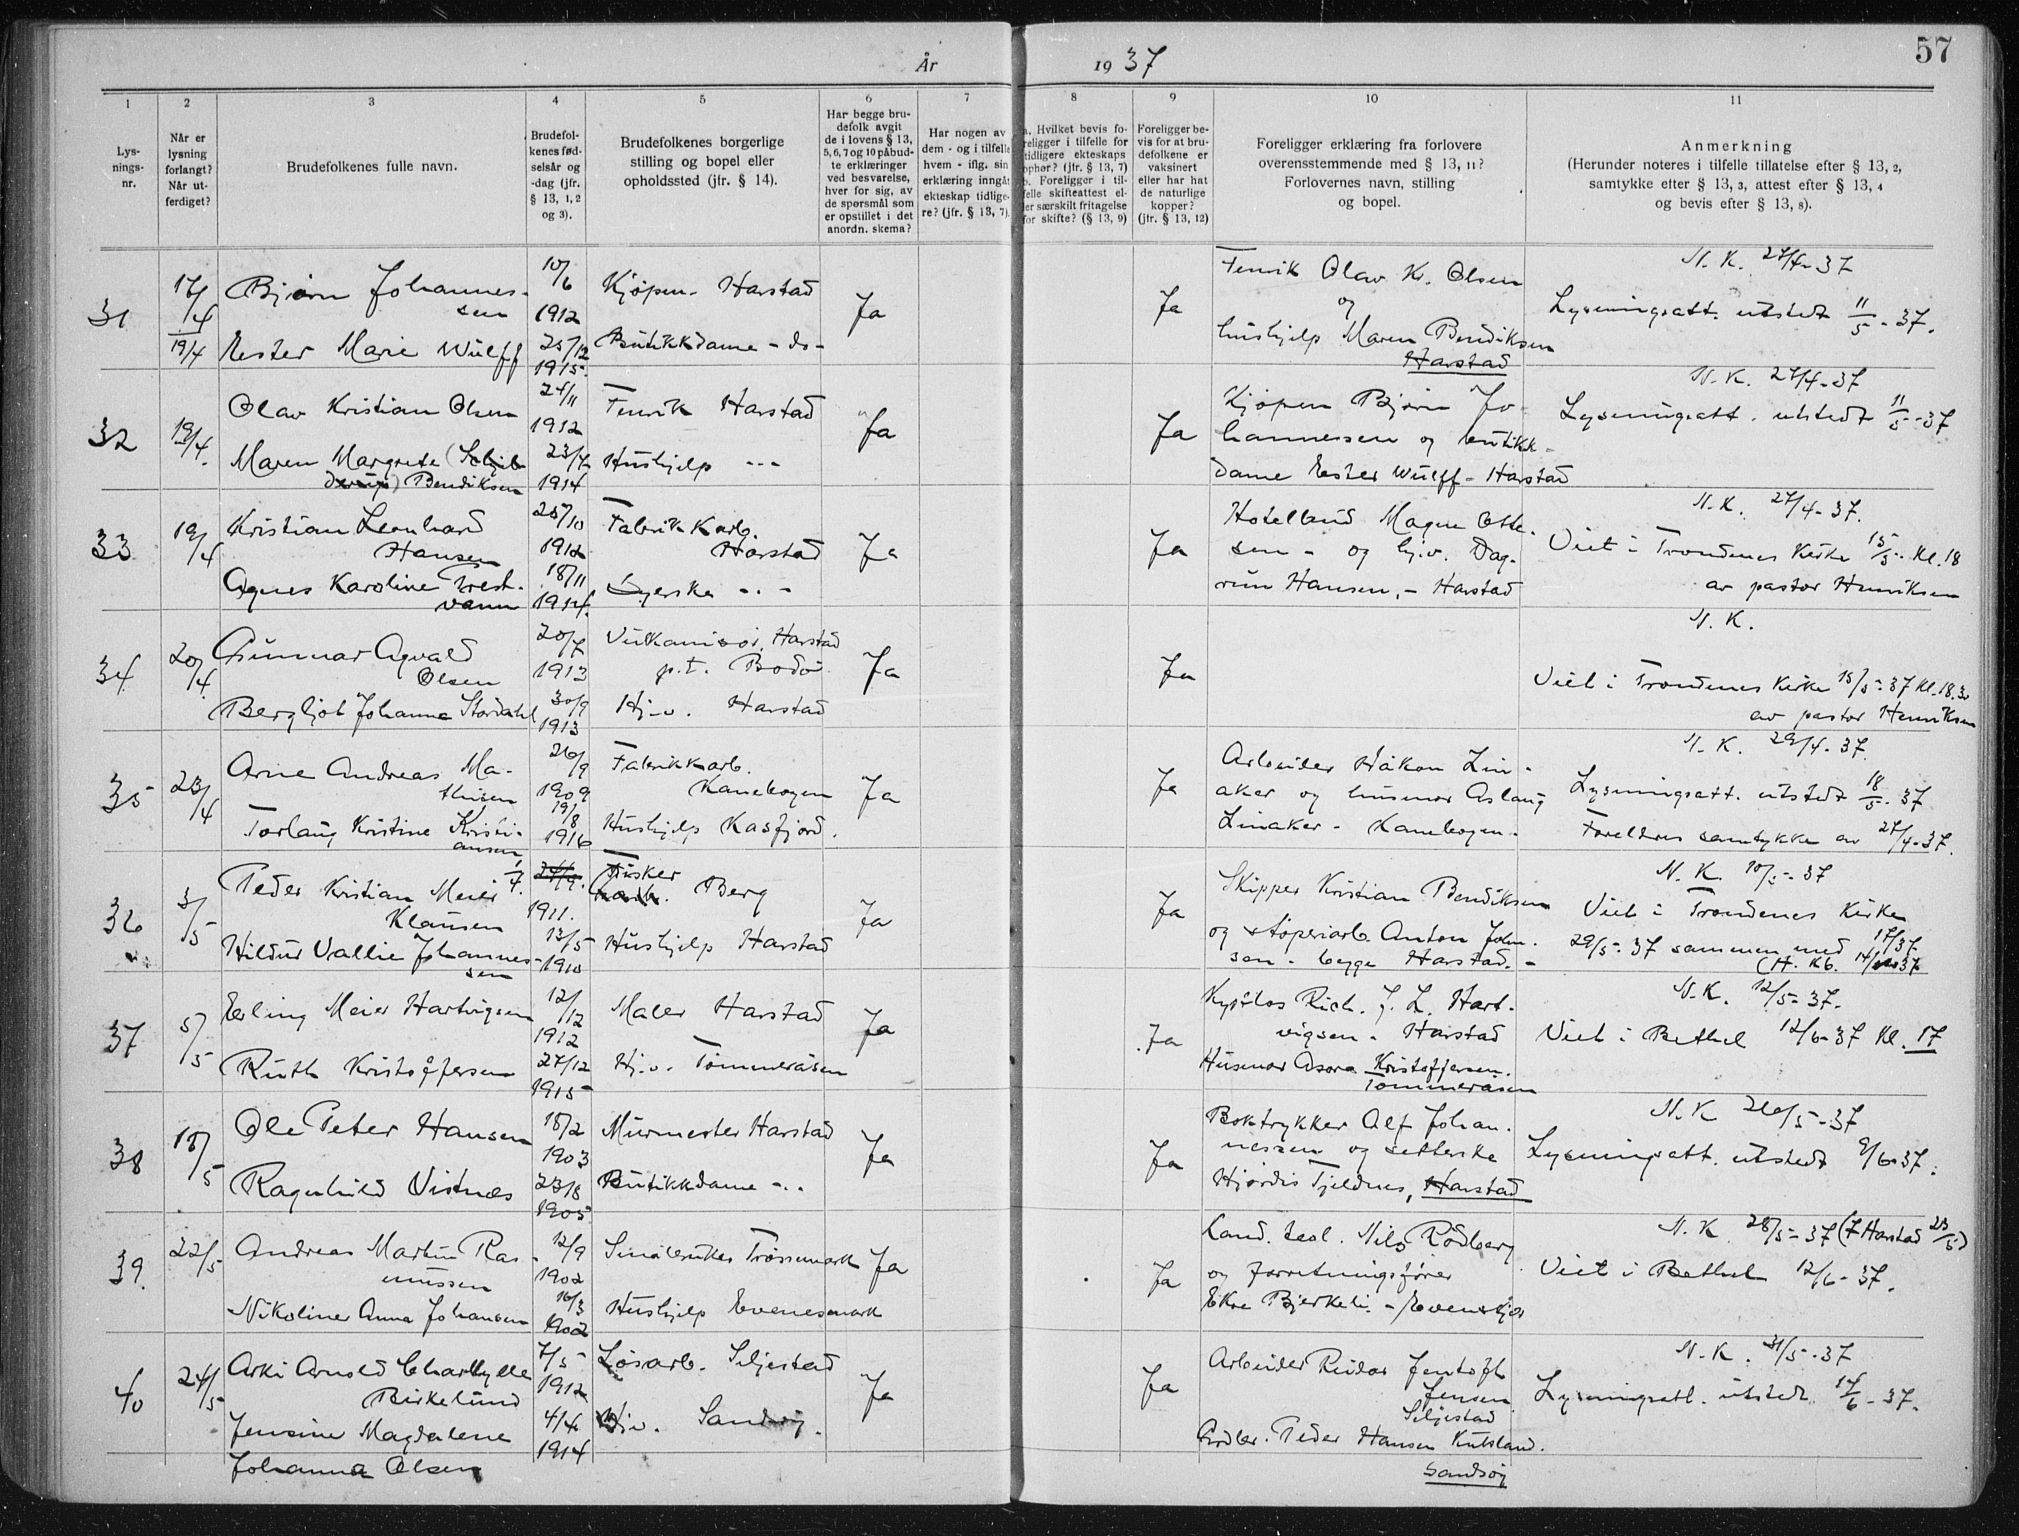 57
År 1937
1 2 3 4 5 6 7 8 9 10 11
Lys-
nings-
nr.
Når er
lysning
forlangt?
Når ut-
ferdiget?
Brudefolkenes fulle navn.
Brudefol-
kenes fød-
selsår og
-dag (jfr.
§ 13, 1, 2
og 3).
Brudefolkenes borgerlige
stilling og bopel eller
opholdssted (jfr. § 14).
Har begge bru-
defolk avgit
de i lovens § 13,
5, 6, 7 og 10 påbud-
te erklæringer
ved besvarelse,
hver for sig, av
de spørsmål som
er opstillet i det
anordn. skema?
Har nogen av
dem - og i tilfelle
hvem - iflg. sin
erklæring inngåt
ekteskap tidlige-
re? (jfr. § 13, 7).
a. Hvilket bevis fo-
religger i tilfelle for
tidligere ekteskaps
ophør? (jfr. § 13, 7)
b. Foreligger i til-
felle skifteattest el-
ler særskilt fritagelse
for skifte? (§ 13, 9)
Foreligger be-
vis for at bru-
defolkene er
vaksinert
eller har hat
de naturlige
kopper?
(jfr. § 13, 12)
Foreligger erklæring fra forlovere
overensstemmende med § 13, 11?
Forlovernes navn, stilling
og bopel.
Anmerkning
(Herunder noteres i tilfelle tillatelse efter § 13, 2,
samtykke efter § 13, 3, attest efter § 13, 4
og bevis efter § 13, 8).
31
17/4
19/4
Bjørn Johannes-
sen
Ester Marie Wulff
10/6
1912
25/12
1915.
Kjøpm. Harstad
Butikkdame - do -
Ja
Ja
Fenrik Olav K. Olsen
og
hushjelp Maren Bendiksen
Harstad
N. K. 27/4-37
Lysningsatt. utstedt 11/5-37.
32
19/4.
Olav Kristian Olsen
Maren Margrete (Schjel-
derup) Bendiksen
24/11
1912
23/4
1914
Fenrik Harstad
Hushjelp - - -
Ja
Ja
Kjøpm Bjørn Jo-
hannessen og butikk-
dame Ester Wulff - Harstad
N. K. 27/4-37
Lysningsatt. utstedt 11/5-37
33
19/4
Kristian Leonhard
Hansen
Agnes Karoline Trest-
vann
25/10
1912
18/11
1914.
Fabrikkarb.
Harstad
Syerske - . -
Ja
Ja
Hotellbud Magne Otte-
sen - og hj.v. Dag-
run Hansen, - Harstad
N. K. 27/4-37.
Viet i Trondenes Kirke 15/5- Kl. 18
av pastor Henriksen
34
20/4
Gunnar Agvald
Olsen
Bergljot Johanna Stordahl
20/7
1913
30/9
1913
Vulkanisør, Harstad
p.t. Bodø
Hj.v. Harstad
Ja
Ja
N. K.
Viet i Trondenes Kirke 15/5-37 Kl. 18.30
av pastor Henriksen
35
23/4
Arne Andreas Ma-
thisen
Torlaug Kristine Kristi-
ansen
26/9
1909
19/8
1916
Fabrikkarb.
Kanebogen
Hushjelp Kasfjord.
Ja
Ja
Arbeider Håkon Lin-
aker og husmor Aslaug
Linaker - Kanebogen -
N. K. 29/4-37.
Lysningsatt. utstedt 18/5-37
Foreldres samtykke av 27/4-37.
36
3/5
Peder Kristian Meier
Klausen
Hildur Vallie Johannes-
sen
1/4.
1911.
13/5
1910
Fisker
Berg
Hushjelp Harstad
Ja
Ja
Skipper Kristian Bendiksen
og støperiarb. Anton John-
sen - begge Harstad. -
N. K. 10/5-37
Viet i Trondenes Kirke
29/5-37 sammen med 17/37.
37
5/5
Erling Meier Hartvigsen
Ruth Kristoffersen
12/12
1912
27/12
1915
Maler Harstad
Hj.v. Tømmeråsen
Ja
Ja
Kystlos Rich. J. L. Hart-
vigsen - Harstad
Husmor Asora Kristoffersen.
Tømmeråsen
N. K. 12/5-37.
Viet i Bethel 12/6-37 Kl. 17
38
18/5
Ole Peter Hansen
Ragnhild Vistnes
18/2
1903
23/8
1905
Murmester Harstad
Butikkdame - . .
Ja
Ja
Boktrykker Alf Johan-
nessen og setterske
Hjørdis Tjeldnes, Harstad
N. K. 26/5-37
Lysningsatt. utstedt 9/6-37.
39.
22/5
Andreas Martin Ras-
mussen
Nikoline Anna Johansen
12/9
1902
16/3
1902
Småbruker Trøssemark
Hushjelp Evenesmark
Ja
Ja
Cand. teol. Nils Rødberg
og forretningsfører
Ekre Bjerkeli. - Evenskjer
N. K. 28/5-37 (7 Harstad 23/5)
Viet i Bethel 12/6-37.
40
24/5
Arki Arnold Charhylle
Birkelund
Jensine Magdalene
Johanna Olsen
7/5
1912
4/4
1914
Løsarb. Seljestad
Hjv. Sandsøy.
Ja
Ja
Arbeider Reidar Jentoft
Jensen
Seljestad
Peder Hansen
Sandsøy
N. K. 31/5-37
Lysningsatt. utstedt 14/6-37.